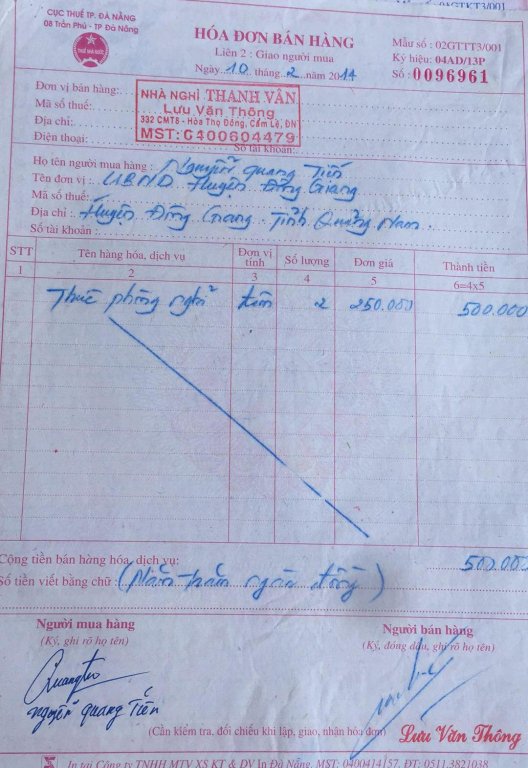 02GTKT3/001
CỤC THUẾ TP. ĐÀ NẴNG
08 Trần Phú - TP Đà Nẵng
THUẾ NHÀ NƯỚC
HÓA ĐƠN BÁN HÀNG
Liên 2 : Giao người mua
Ngày 10 tháng 2 năm 2014
Mẫu số : 02GTTT3/001
Ký hiệu: 04AD/13P
Số : 0096961
Đơn vị bán hàng:
Mã số thuế:
Địa chỉ:
Điện thoại: Số tài khoản:
NHÀ NGHỈ THANH VÂN
Lưu Văn Thông
332 CMT8 - Hòa Thọ Đông, Cẩm Lệ, ĐN
MST: 0400604479
Họ tên người mua hàng : Nguyễn Quang Tiến
Tên đơn vị : UBND Huyện Đông Giang
Mã số thuế:
Địa chỉ : Huyện Đông Giang - Tỉnh Quảng Nam.
Số tài khoản :
STT Tên hàng hóa, dịch vụ Đơn vị tính Số lượng Đơn giá Thành tiền
1 2 3 4 5 6=4x5
Thuê phòng nghỉ đêm 2 250.000 500.000
Cộng tiền bán hàng hóa, dịch vụ: 500.000
Số tiền viết bằng chữ : (Năm trăm ngàn đồng)
Người mua hàng Người bán hàng
(Ký, ghi rõ họ tên) (Ký, đóng dấu, ghi rõ họ tên)
Nguyễn Quang Tiến
(Cần kiểm tra, đối chiếu khi lập, giao, nhận hóa đơn) Lưu Văn Thông
In tại Công ty TNHH MTV XS KT & DV In Đà Nẵng, MST: 0400414 ĐT: 0511.3821038